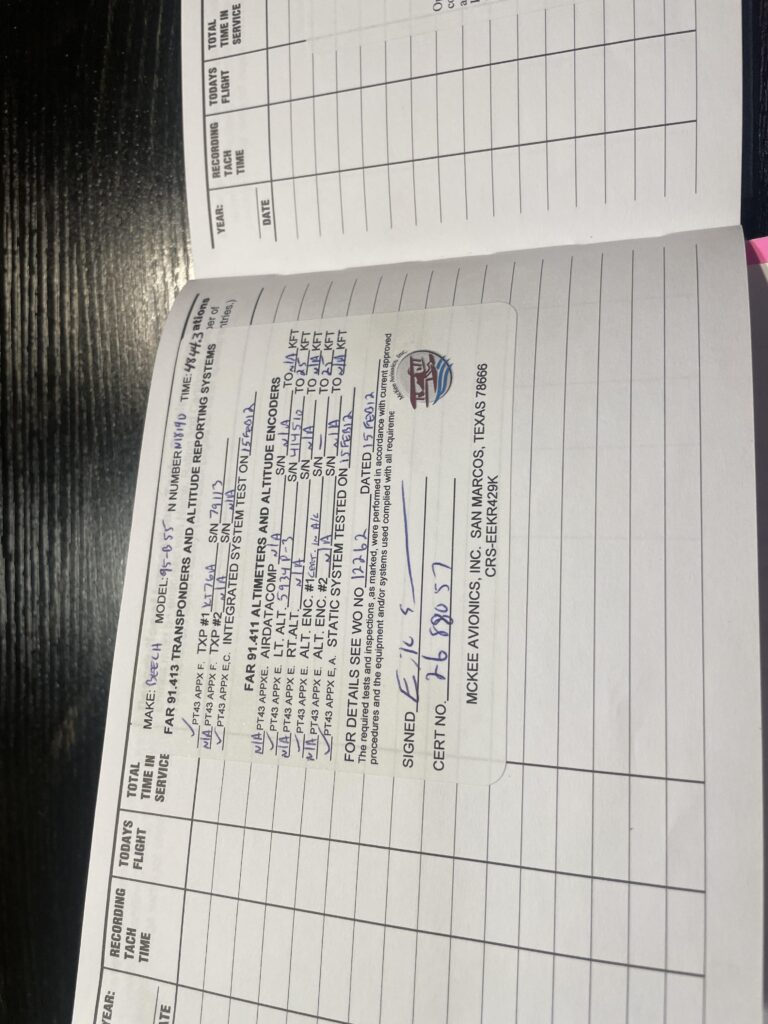 YEAR:
RECORDING TACH TIME
TODAYS FLIGHT
TOTAL TIME IN SERVICE
ations
er of
ntries.)
MAKE: BEECH MODEL: 95-B55 N NUMBER N1819D TIME: 4844.3
FAR 91.413 TRANSPONDERS AND ALTITUDE REPORTING SYSTEMS
✓ PT43 APPX F. TXP #1 KT76A S/N 79113
N/A PT43 APPX F. TXP #2 N/A S/N N/A
✓ PT43 APPX E,C. INTEGRATED SYSTEM TEST ON 15FEB12
FAR 91.411 ALTIMETERS AND ALTITUDE ENCODERS
N/A PT43 APPXE. AIRDATACOMP N/A S/N N/A TO N/A KFT
✓ PT43 APPX E. LT. ALT. 5934P-3 S/N 414510 TO 25 KFT
N/A PT43 APPX E. RT ALT. N/A S/N N/A TO N/A KFT
✓ PT43 APPX E. ALT. ENC. #1 CERT. IN A/C S/N — TO 25 KFT
N/A PT43 APPX E. ALT. ENC. #2 N/A S/N N/A TO N/A KFT
✓ PT43 APPX E, A. STATIC SYSTEM TESTED ON 15FEB12
FOR DETAILS SEE WO NO. 12262 DATED 15FEB12
The required tests and inspections ,as marked, were performed in accordance with current approved
procedures and the equipment and/or systems used complied with all requireme
SIGNED
CERT NO. 2688057
McKee Avionics, Inc.
MCKEE AVIONICS, INC. SAN MARCOS, TEXAS 78666
CRS-EEKR429K
YEAR:
DATE
RECORDING TACH TIME
TODAYS FLIGHT
TOTAL TIME IN SERVICE